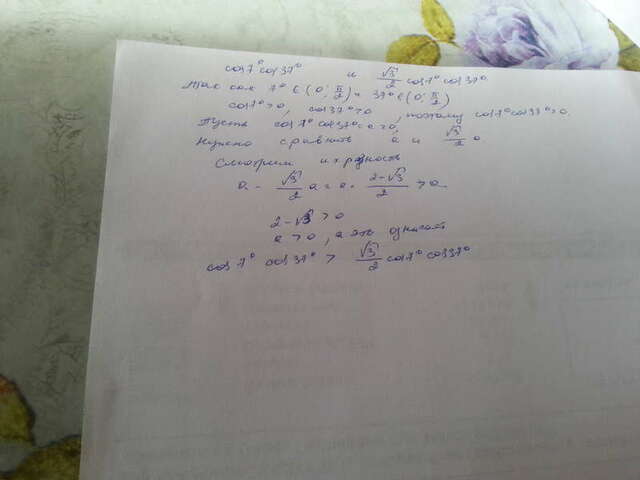 cos7° cos37° и √3/2 cos7° cos37°
Так как 7° ∈ (0; π/2) и 37° ∈ (0; π/2)
cos7°>0, cos37°>0, поэтому cos7°cos37°>0.
Пусть cos7° cos37° = a > 0,
нужно сравнить a и √3/2 a
Смотрим их разность
a - √3/2 a = a · (2-√3)/2 > 0
2-√3 > 0
a > 0, а это означает
cos7° cos37° > √3/2 cos7° cos37°